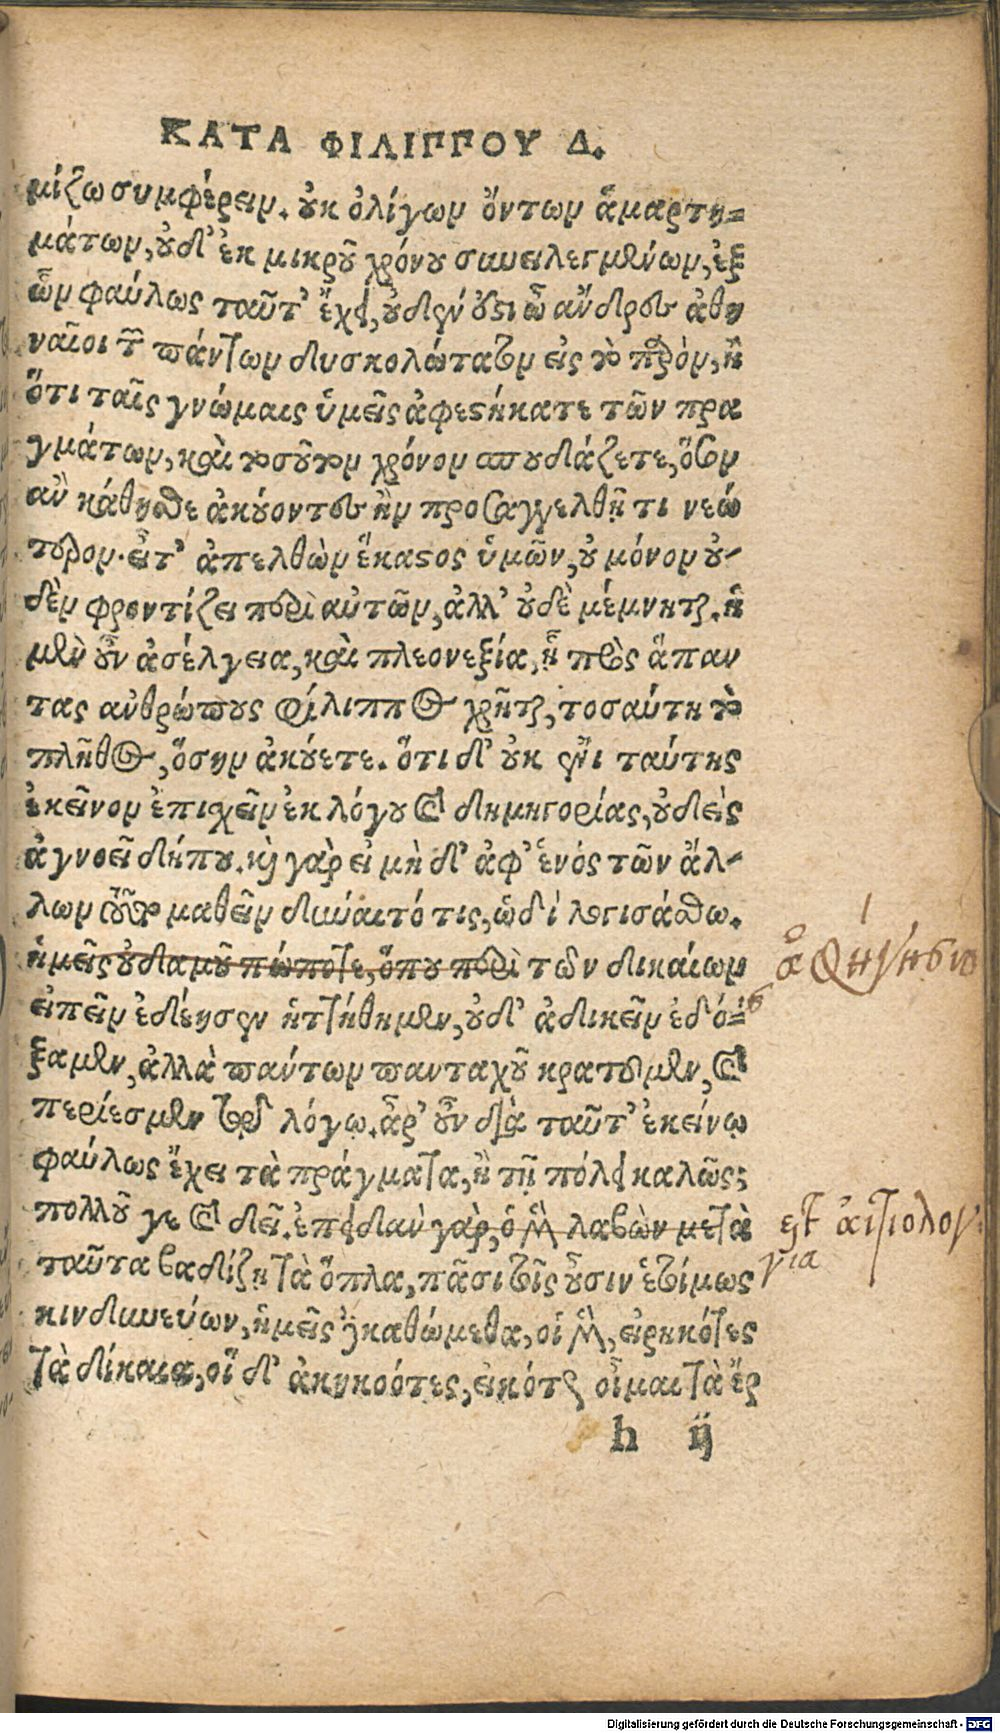 ΚΑΤΑ ΦΙΛΙΠΠΟΥ Δ.
μίζω συμφέρειν. οὐκ ὀλίγων ὄντων ἁμαρτη=
μάτων, οὐδ' ἐκ μικροῦ χρόνου συνειλεγμένων, ἐξ
ὧν φαύλως ταῦτ' ἔχει, οὐδέν ἐστι ὦ ἄνδρες ἀθη
ναῖοι τῶν πάντων δυσκολώτατον εἰς τὸ παρὸν, ἢ
ὅτι ταῖς γνώμαις ὑμεῖς ἀφεστήκατε τῶν πρα
γμάτων, καὶ τοσοῦτον χρόνον σπουδάζετε, ὅσον
ἂν κάθησθε ἀκούοντες ἢν προσαγγελθῇ τι νεώ
τερον. εἶτ' ἀπελθὼν ἕκαστος ὑμῶν, οὐ μόνον οὐ-
δὲν φροντίζει περὶ αὐτῶν, ἀλλ' οὐδὲ μέμνηται. ἡ
μὲν οὖν ἀσέλγεια, καὶ πλεονεξία, ᾗ πρὸς ἅπαν
τας ἀνθρώπους φίλιππος χρῆται, τοσαύτη τὸ
πλῆθος, ὅσην ἀκούετε. ὅτι δ' οὐκ ἔνι ταύτης
ἐκεῖνον ἐπισχεῖν ἐκ λόγου καὶ δημηγορίας, οὐδεὶς
ἀγνοεῖ δήπου. καὶ γὰρ εἰ μὴ δ' ἀφ' ἑνός τῶν ἄλ-
λων τοῦτο μαθεῖν δύναιτό τις, ὡδὶ λογισάσθω.
ἡμεῖς οὐδαμοῦ πώποτε, ὅπου περὶ τῶν δικαίων
εἰπεῖν ἐδέησεν ἡττήθημεν, οὐδ' ἀδικεῖν ἐδό=
ξαμεν, ἀλλὰ πάντων πανταχοῦ κρατοῦμεν, καὶ
περίεσμεν τῷ λόγῳ. ἆρ' οὖν διὰ ταῦτ' ἐκείνῳ
φαύλως ἔχει τὰ πράγματα, ἢ τῇ πόλει καλῶς;
πολλοῦ γε καὶ δεῖ. ἐπειδὰν γὰρ, ὁ μὲν λαβὼν μετὰ
ταῦτα βαδίζῃ τὰ ὅπλα, πᾶσι τοῖς οὖσιν ἑτοίμως
κινδυνεύων, ἡμεῖς δὲ καθώμεθα, οἱ μὲν, εἰρηκότες
τὰ δίκαια, οἳ δ' ἀκηκοότες, εἰκότως οἶμαι τὰ ἔρ
h ij
ἀφήγησις
est ἀιτιολογ
για
Digitalisierung gefördert durch die Deutsche Forschungsgemeinschaft - DFG